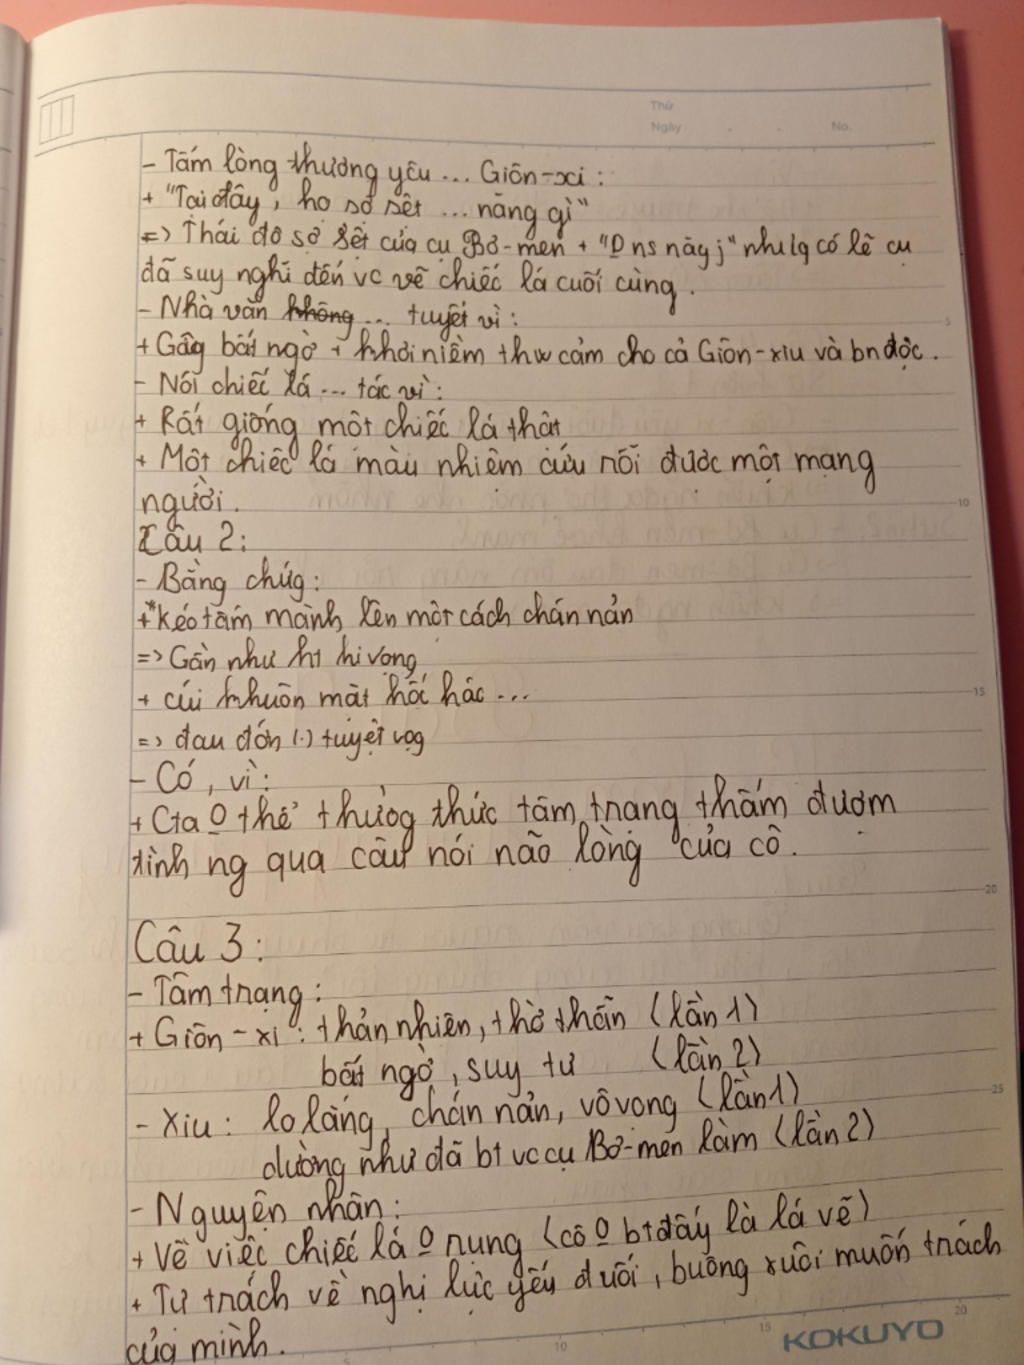 Thứ
Ngày . . No.
- Tấm lòng thương yêu ... Giôn-xi :
+ "Tại đây, họ sợ sệt ... năng gì"
=> Thái độ sợ sệt của cụ Bơ-men + "O ns này j" nhưg có lẽ cụ
đã suy nghĩ đến vc vẽ chiếc lá cuối cùng.
- Nhà văn không ... tuyết vì :
+ Gâg bất ngờ + khơi niềm thw cảm cho cả Giôn-xiu và bn đọc.
5
- Nói chiếc lá ... tác vì :
+ Rất giống một chiếc lá thật
+ Một chiếc lá màu nhiệm cứu rỗi được một mạng
người.
10
Câu 2:
- Bằng chứg :
+ "Kéo tấm mành lên một cách chán nản
=> Gần như ht hi vọng
+ cúi khuôn mặt hốc hác ...
15
=> đau đớn (.) tuyệt vọg
- Có, vì :
+ Cta O thể thưởg thức tâm trạng thấm đượm
tình ng qua câu nói não lòng của cô.
20
Câu 3 :
- Tâm trạng :
+ Giôn-xi : thản nhiên, thờ thẫn (lần 1)
bất ngờ, suy tư (lần 2)
25
- Xiu : lo lắng, chán nản, vô vọng (lần 1)
dường như đã bt vc cụ Bơ-men làm (lần 2)
- Nguyên nhân :
+ Về việc chiếc lá O rụng (cô O bt đấy là lá vẽ)
+ Tự trách về nghị lực yếu đuối, buông xuôi muốn trách
của mình.
10 15 20
KOKUYO